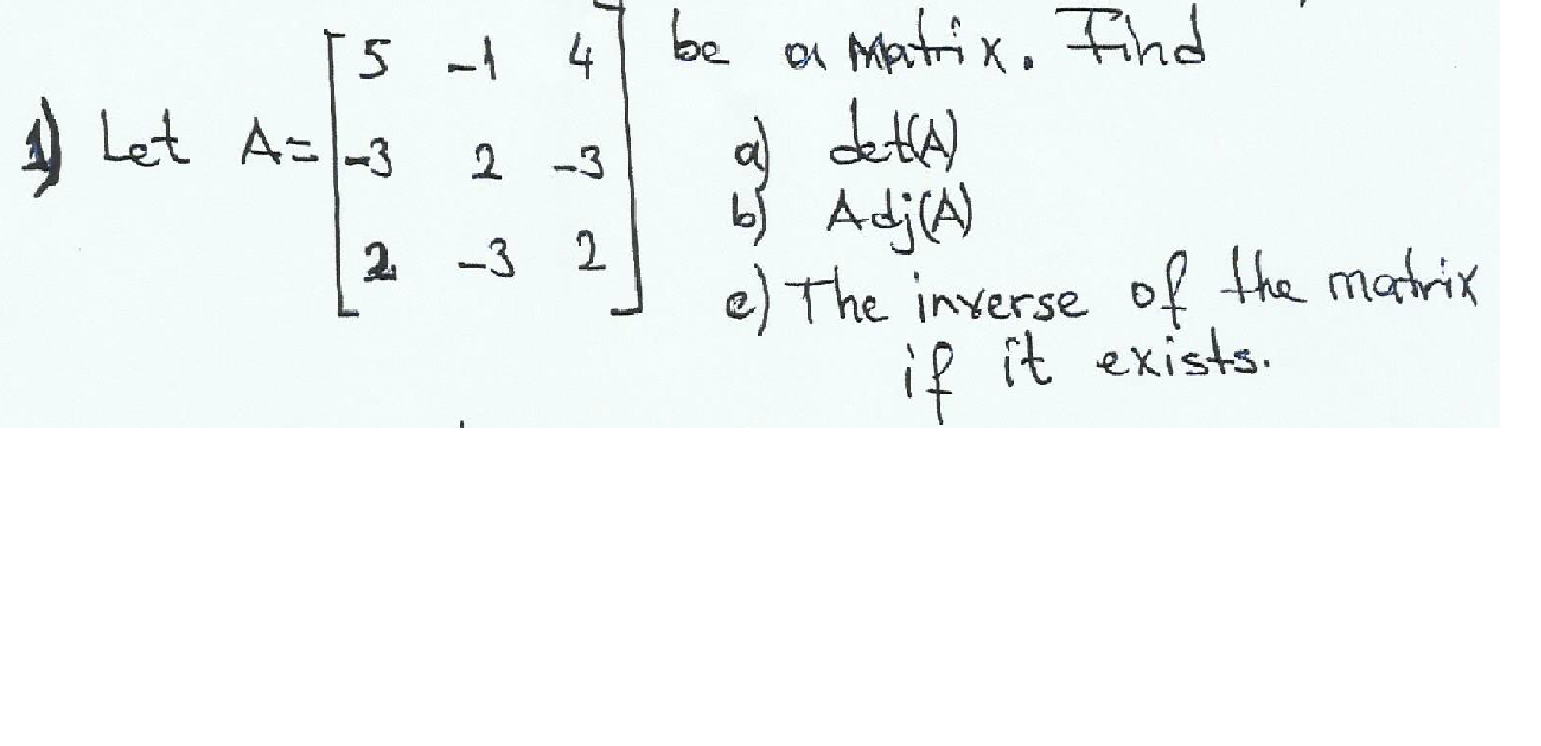 1) Let A= [ 5 -1 4 ] be a matrix. Find
[ -3 2 -3 ] a) det(A)
[ 2 -3 2 ] b) Adj(A)
c) The inverse of the matrix
if it exists.